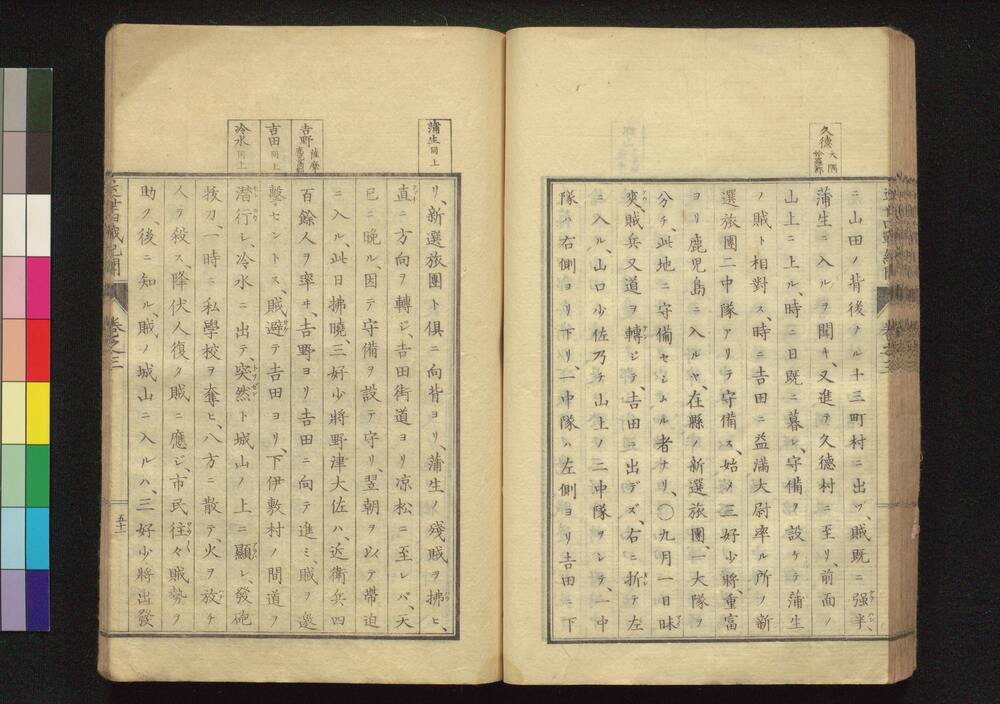 久德 大隅姶羅郡
ニ山田ノ背後ナル十三町村ニ出ヅ、賊既ニ强半、
蒲生ニ入ルヲ聞キ、又進テ久德村ニ至リ、前面ノ
山上ニ上ル、時ニ日既ニ暮レ、守備ヲ設ケテ蒲生
ノ賊ト相對ス、時ニ𠮷田ニ益滿大尉率ル所ノ新
選旅團二中隊アリテ守備ス、始メ三好少將、重富
ヨリ鹿児島ニ入ルヤ、在縣ノ新選旅團、一大隊ヲ
分チ、此地ニ守備セシムル者ナリ、〇九月一日昧
爽、賊兵又道ヲ轉ジテ、𠮷田ニ出デズ、右ニ折テ左
ニ入ル、山口少佐乃チ山上ノ二中隊ヲシテ、一中
隊ハ右側ヨリ下リ、一中隊ハ左側ヨリ𠮷田ニ下
蒲生 同上
𠮷野 薩摩
𠮷田 同上
冷水 同上
リ、新選旅團ト俱ニ向背ヨリ、蒲生ノ殘賊ヲ拂ヒ、
直ニ方向ヲ轉ジ、𠮷田街道ヨリ涼松ニ至レバ、天
已ニ晩ル、因テ守備ヲ設テ守リ、翌朝ヲ以テ帶迫
ニ入ル、此日拂曉、三好少將野津大佐ハ、近衞兵四
百餘人ヲ率ヰ、𠮷野ヨリ𠮷田ニ向テ進ミ、賊ヲ邀
擊セントス、賊避テ𠮷田ヨリ、下伊敷村ノ間道ヲ
潜行レ、冷水ニ出テ、突然ト城山ノ上ニ顯レ、發砲
拔刀、一時ニ私學校ヲ奪ヒ、八方ニ散テ、火ヲ放チ
人ヲ殺ス、降伏人復タ賊ニ應ジ、市民往々賊勢ヲ
助ク、後ニ知ル、賊ノ城山ニ入ルハ、三好少將出發
卷之三
五十一